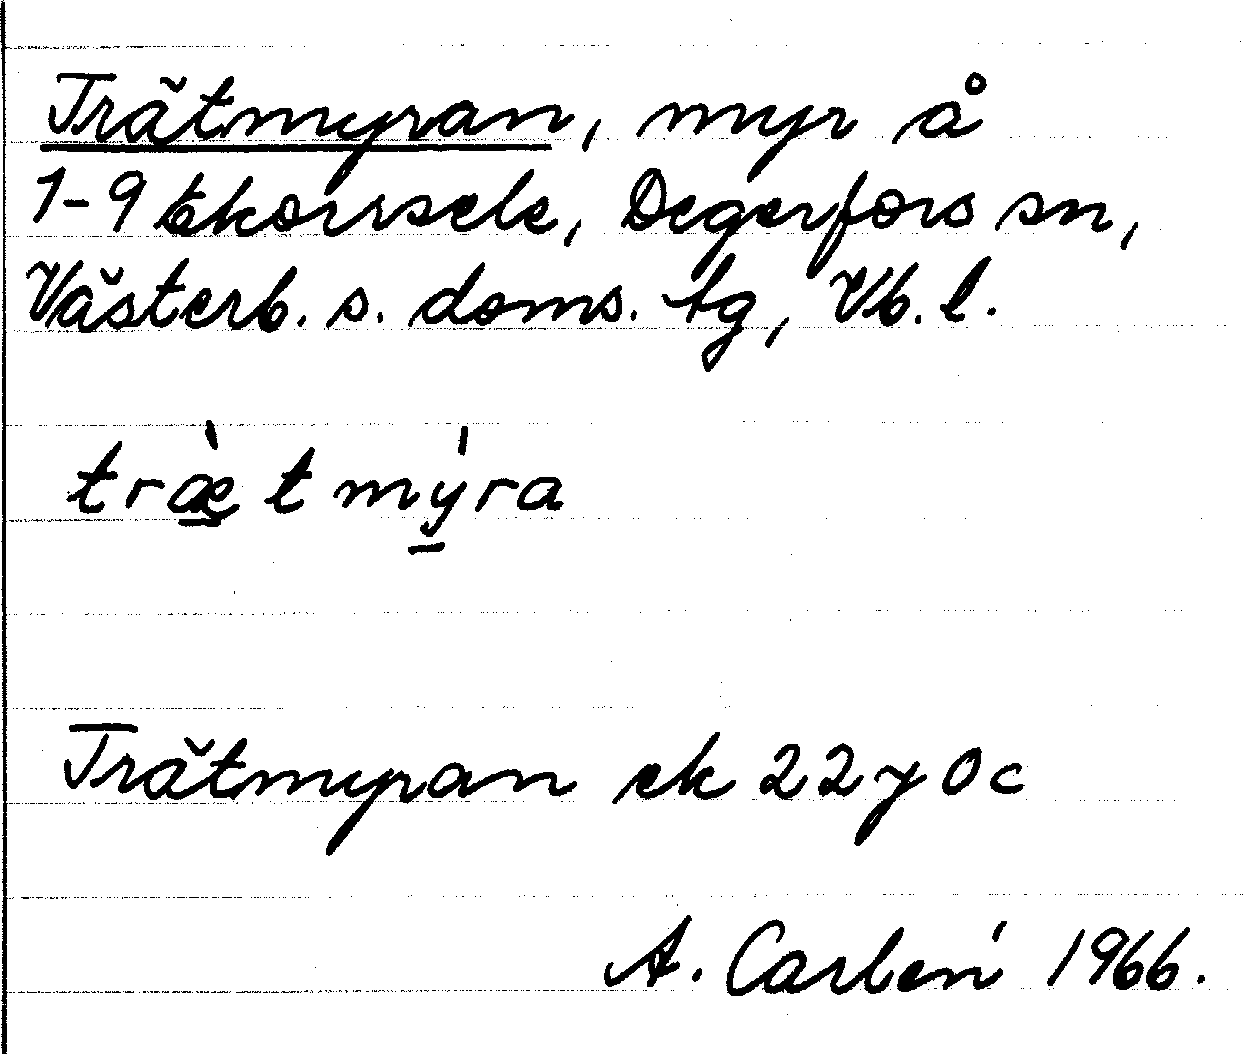 Trätmyran, myr å
1-9 Ekorrsele, Degerfors sn,
Västerb. s. doms. tg, Vb. l.
træ̱̀tmý̱ra
Trätmyran ek 22 y 0 c
A. Carlén 1966.